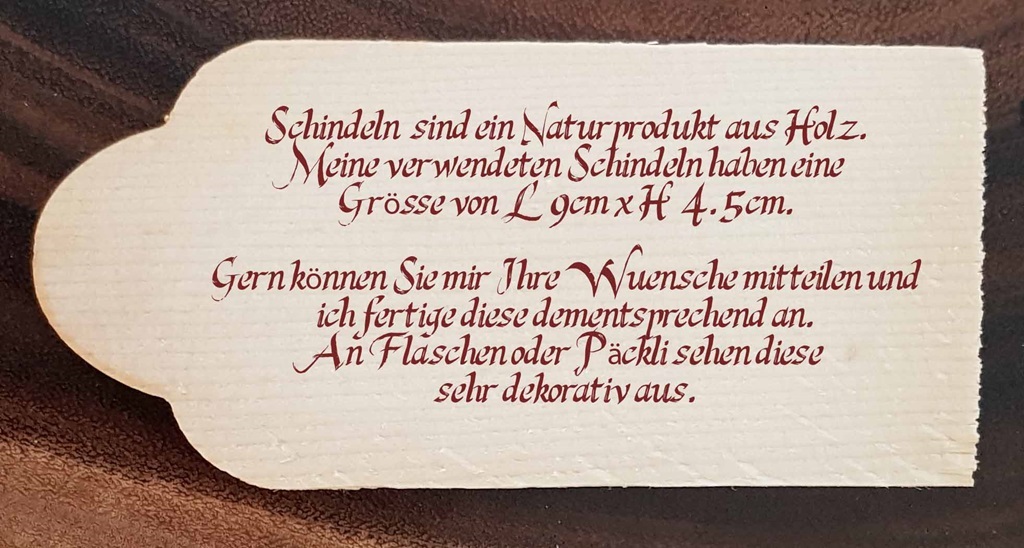 Schindeln sind ein Naturprodukt aus Holz.
Meine verwendeten Schindeln haben eine
Grösse von L 9cm x H 4.5cm.
Gern können Sie mir Ihre Wuensche mitteilen und
ich fertige diese dementsprechend an.
An Flaschen oder Päckli sehen diese
sehr dekorativ aus.